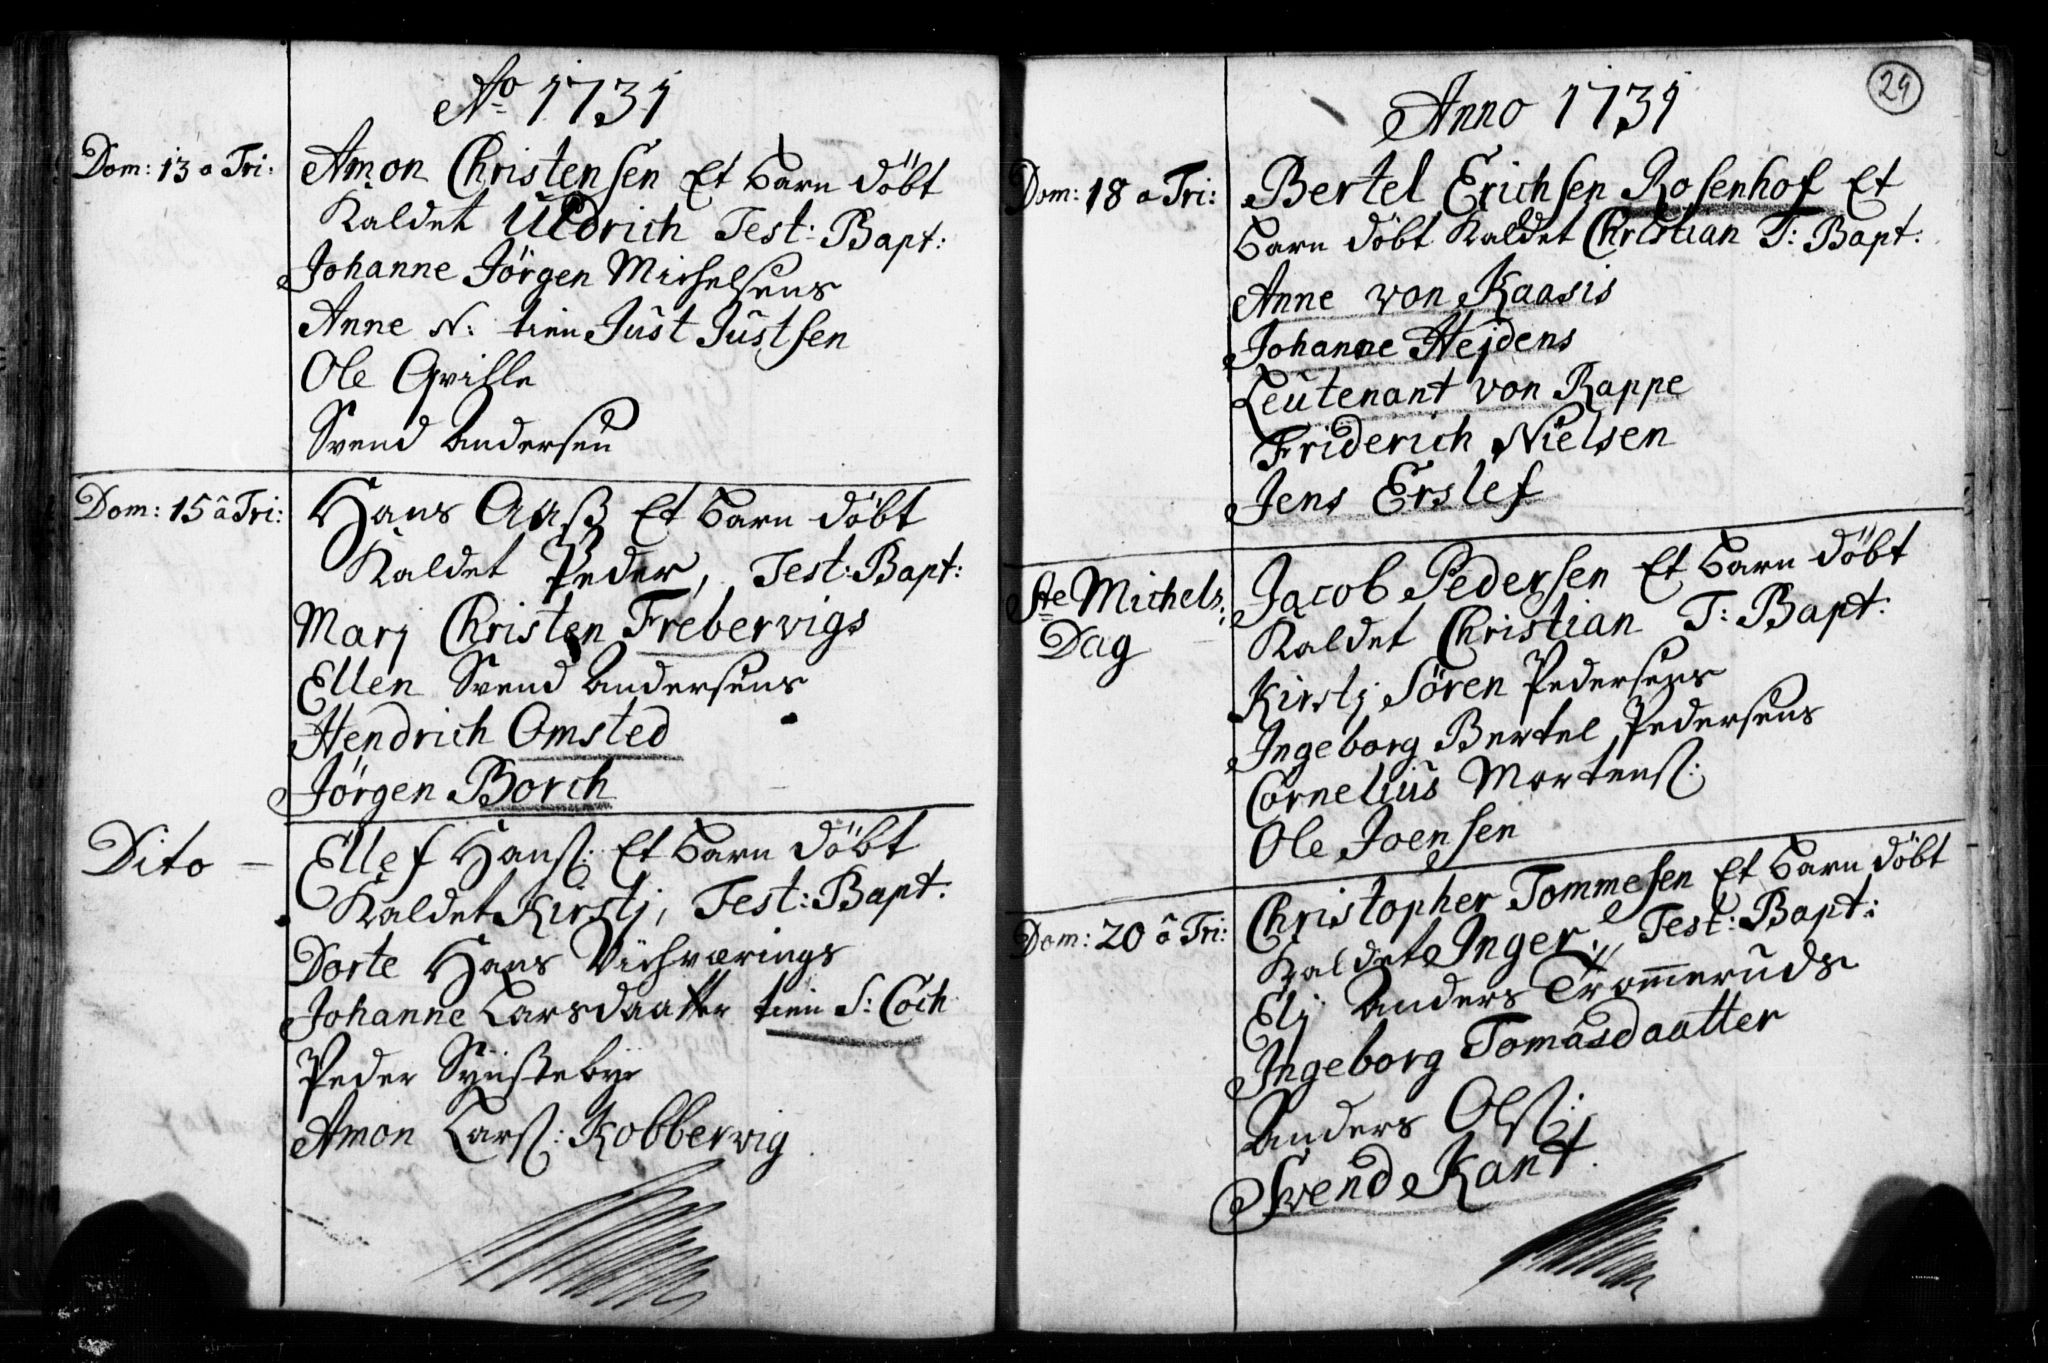 Ao 1731
Dom: 13 a Tri: Amon Christensen Et barn döbt
Kaldet Uldrich Test: Bapt:
Johanne Jörgen Michelsens
Anne N: tien Just Justsen
Ole Qville
Svend Andersen
Dom: 15 â Tri: Hans Aaß Et barn döbt
Kaldet Peder, Test: Bapt:
Marj Christen Frebervigs
Ellen Svend Andersens
Hendrich Omsted
Jörgen Borch
Dito - Ellef Hanß: Et barn döbt
Kaldet Kirstj, Test: Bapt:
Dorte Hans
Johanne Larsdaatter tien S: Coch
Peder
Amon Larß: Kobbervig
29
Anno 1731
Dom: 18 a Tri: Bertel Erichsen Rosenhof Et
barn döbt Kaldet Christian T: Bapt:
Anne von Kaasis
Johanne Hejdens
Leutenant von Rappe
Friderich Nielsen
Jens Erslef
Ste Michels Jacob Pedersen Et barn döbt
Dag Kaldet Christian T: Bapt:
Kirstj Sören Pedersens
Ingeborg Bertel Pedersens
Cornelius Mortenß:
Ole Joensen
Dom: 20 â Tri: Christopher Tommesen Et barn döbt
Kaldet Inger, Test: Bapt:
Elj Anders Trom̄eruds
Ingeborg Tomasdaatter
Anders Olß:
Svend Kant